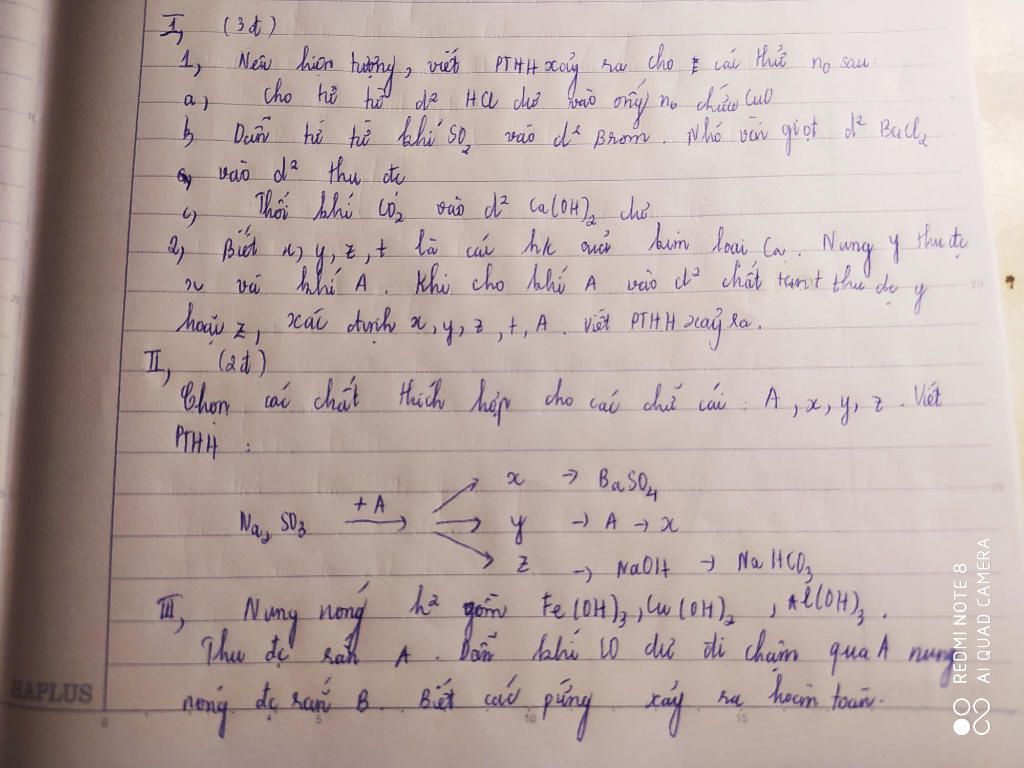 I, (3đ)
1, Nêu hiện tượng, viết PTHH xảy ra cho các thử no sau:
a, Cho từ từ d² HCl dư vào ống no chứa CuO
b, Dẫn từ từ khí SO₂ vào d² Brom. Nhỏ vài giọt d² BaCl₂
vào d² thu đc
c, Thổi khí CO₂ vào d² Ca(OH)₂ dư.
2, Biết x, y, z, t là các hk của kim loại Ca. Nung y thu đc
x và khí A. Khi cho khí A vào d² chất tan t thu đc y
hoặc z, xác định x, y, z, t, A. viết PTHH xảy ra.
II, (2đ)
Chọn các chất thích hợp cho các chữ cái: A, x, y, z. Viết
PTHH:
x → BaSO₄
Na₂SO₃ +A → y → A → x
z → NaOH → NaHCO₃
III, Nung nóng h² gồm Fe(OH)₃, Cu(OH)₂, Al(OH)₃.
Thu đc rắn A. Dẫn khí CO dư đi chậm qua A nung
nóng đc rắn B. Biết các pứng xảy ra hoàn toàn.
HAPLUS
0 5 10 15
REDMI NOTE 8
AI QUAD CAMERA